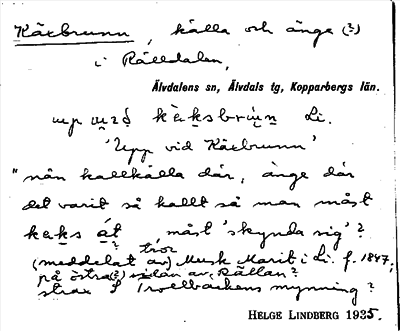 Käxbrunn, källa och änge (?)
i Rälldalen,
Älvdalens sn, Älvdals tg, Kopparbergs län.
upp med käksbrunn Li.
'Upp vid Käxbrunn'
"nån kallkälla där, änge där
det varit så kallt så man måst
kaks åt, måst 'skynda sig'?
(meddelat av) Musk Marit i Li. f. 1847;
tror
på östra (?) sidan av Rällan?
strax S Trollbäckens mynning?
HELGE LINDBERG 1935.